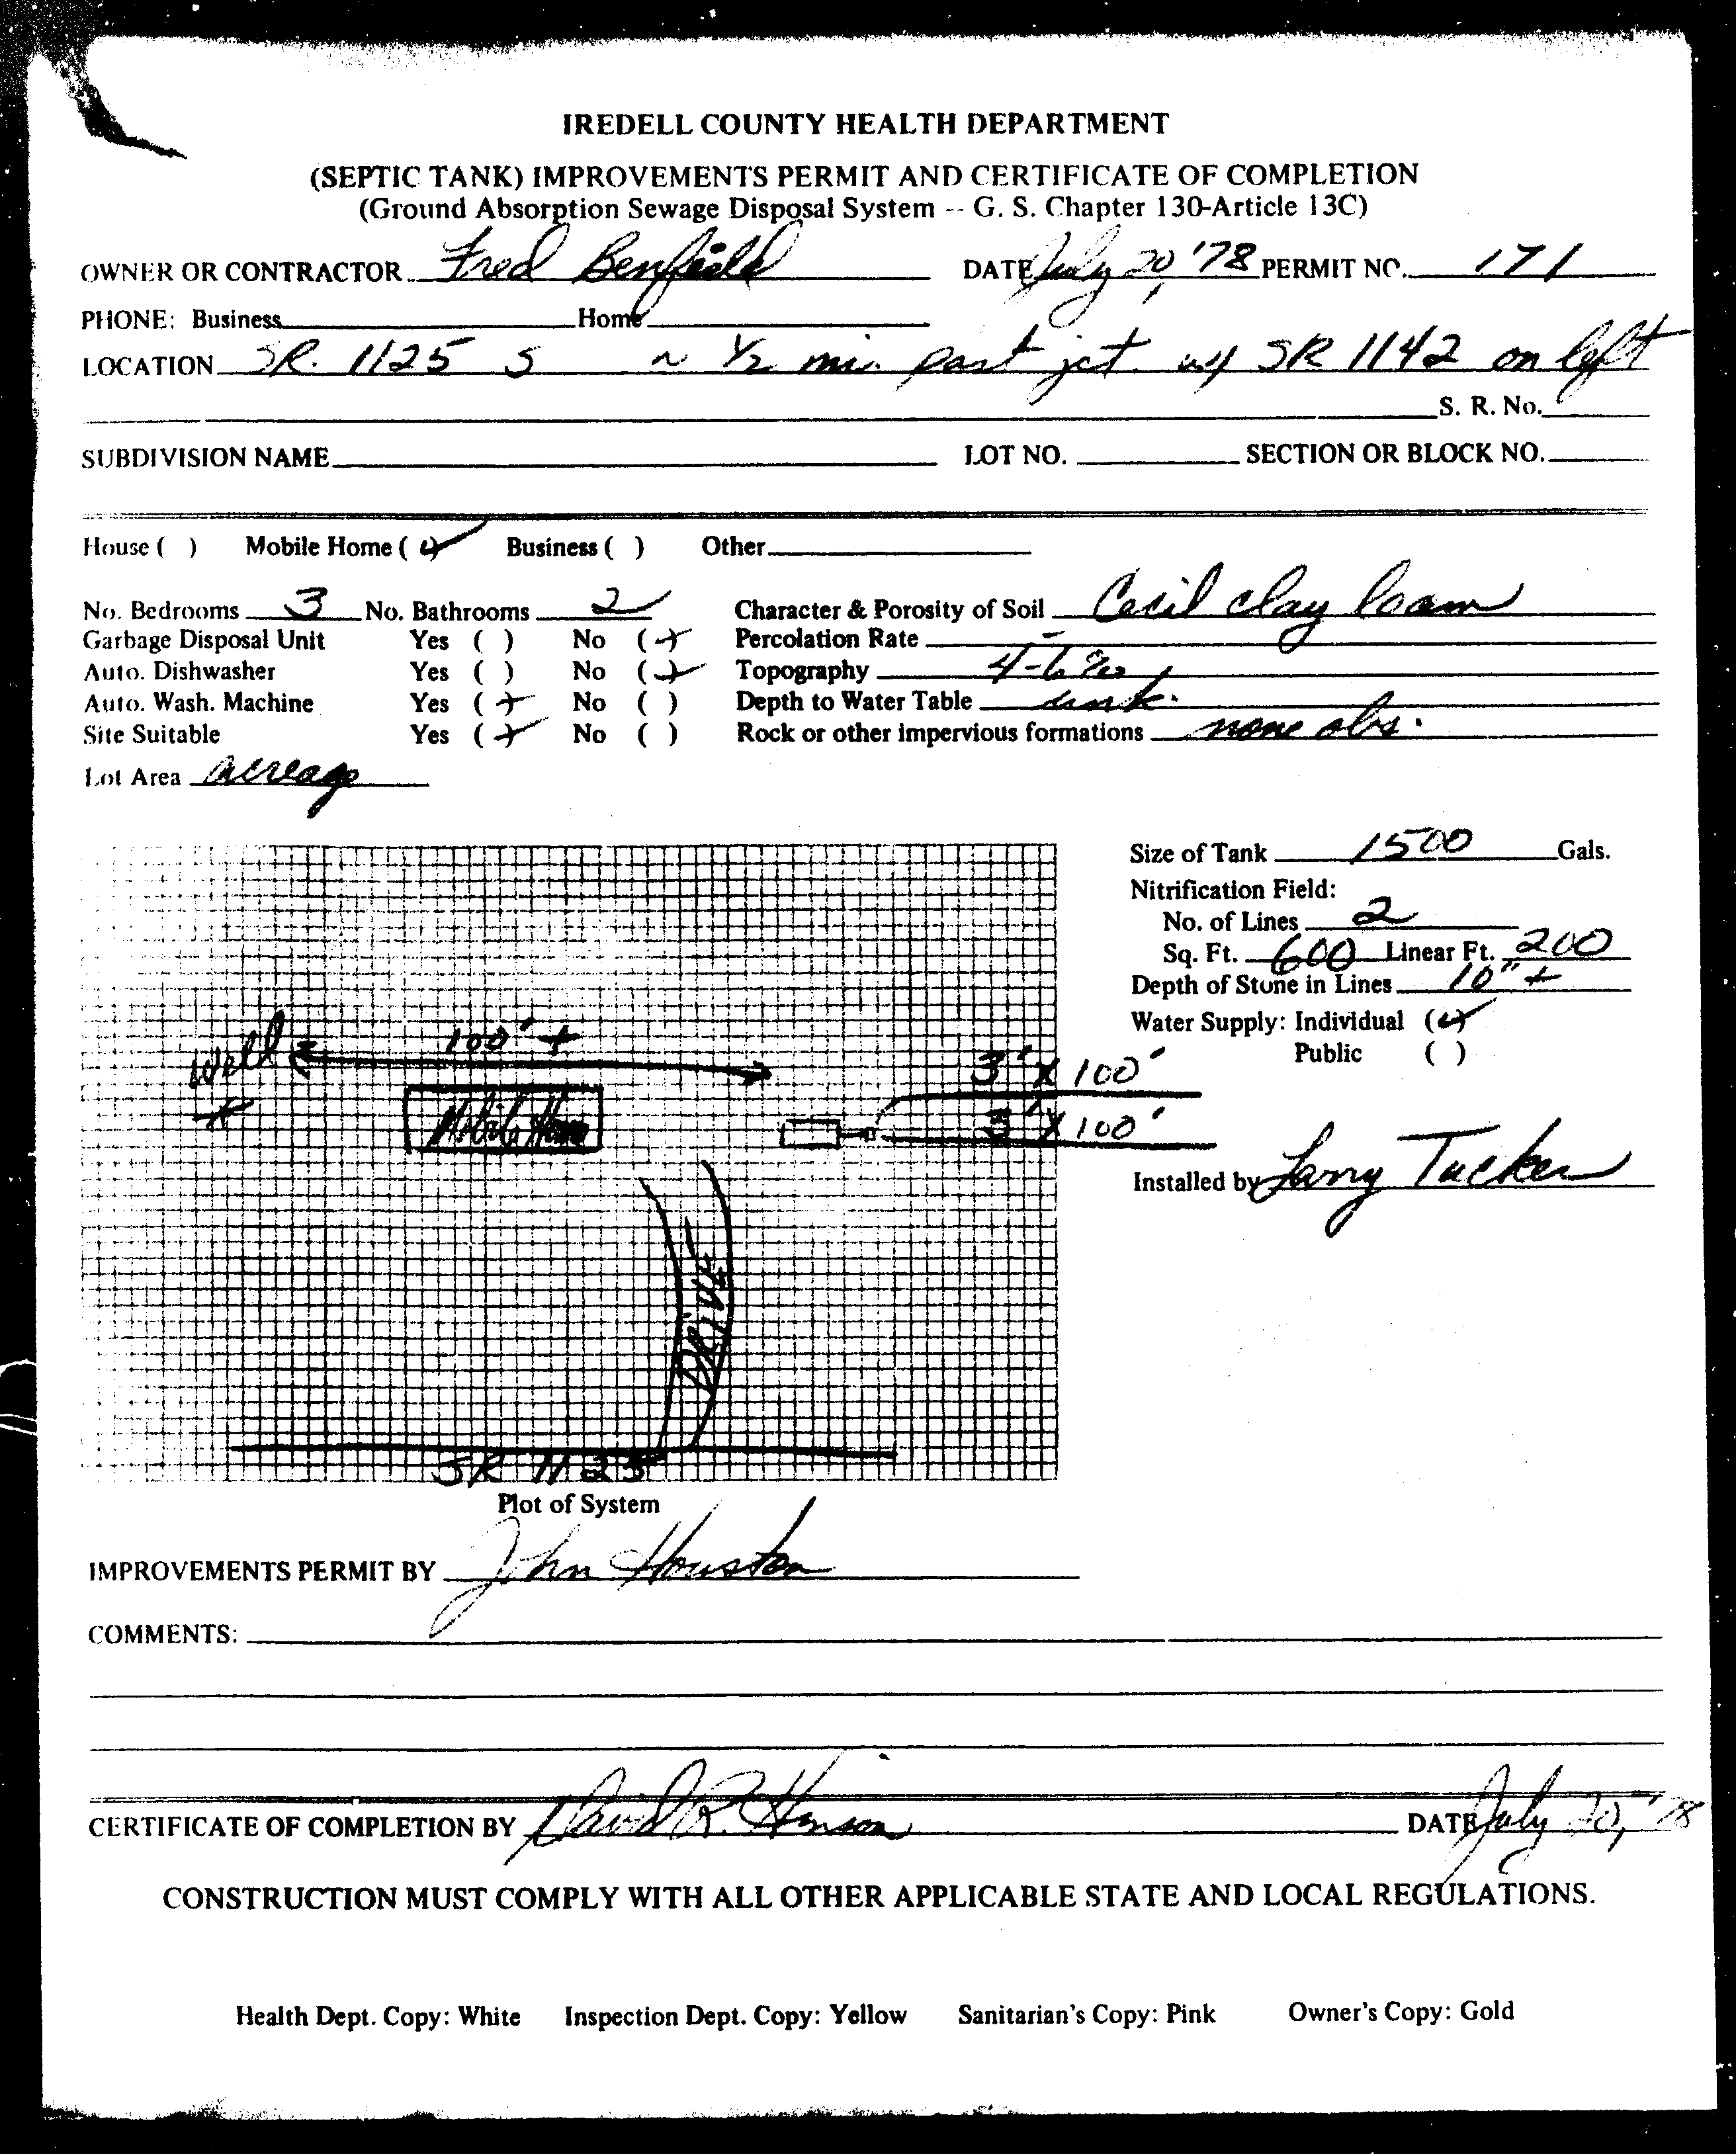 IREDELL COUNTY HEALTH DEPARTMENT
(SEPTIC TANK) IMPROVEMENTS PERMIT AND CERTIFICATE OF COMPLETION
(Ground Absorption Sewage Disposal System -- G. S. Chapter 130-Article 13C)
OWNER OR CONTRACTOR Fred Benfield DATE July 20, '78 PERMIT NO. 171
PHONE: Business Home
LOCATION SR. 1125 S ~ 1/2 mi. past jct. w/ SR 1142 on left
S. R. No.
SUBDIVISION NAME LOT NO. SECTION OR BLOCK NO.
House ( ) Mobile Home (✓) Business ( ) Other
No. Bedrooms 3 No. Bathrooms 2 Character & Porosity of Soil Cecil clay loam
Garbage Disposal Unit Yes ( ) No (✓) Percolation Rate -
Auto. Dishwasher Yes ( ) No (✓) Topography 4-6%
Auto. Wash. Machine Yes (✓) No ( ) Depth to Water Table unk.
Site Suitable Yes (✓) No ( ) Rock or other impervious formations none obs.
Lot Area acreage
Size of Tank 1500 Gals.
Nitrification Field:
No. of Lines 2
Sq. Ft. 600 Linear Ft. 200
Depth of Stone in Lines 10" +
Water Supply: Individual (✓)
Public ( )
Well 100' +
3' X 100'
Mobile Home
3' X 100'
Installed by Larry Tucker
DRIVE
SR 1125
Plot of System
IMPROVEMENTS PERMIT BY John Houston
COMMENTS:
CERTIFICATE OF COMPLETION BY David R. Henson DATE July 20, '78
CONSTRUCTION MUST COMPLY WITH ALL OTHER APPLICABLE STATE AND LOCAL REGULATIONS.
Health Dept. Copy: White Inspection Dept. Copy: Yellow Sanitarian's Copy: Pink Owner's Copy: Gold